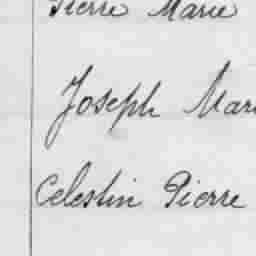 Pierre Marie
Joseph Mari
Celestin Pierre